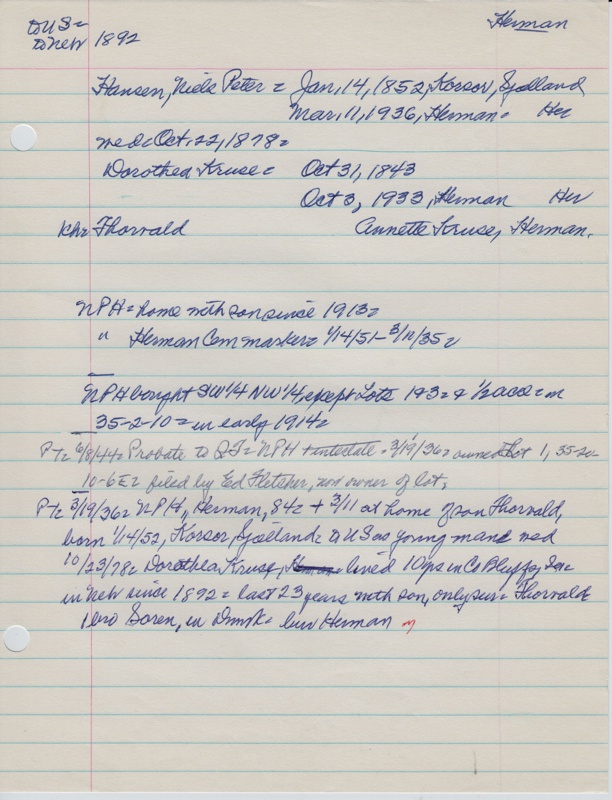 Herman
to US=
to Nebr 1892
Hansen, Niels Peter = Jan, 14, 1852, Korsor, Sjalland
Mar, 11, 1936, Herman= Her
med= Oct. 22, 1878=
Dorothea Kruse= Oct 31, 1843
Oct 3, 1933, Herman Her
ch= Thorvald Annette Kruse, Herman.
NPH= home with son since 1913=
" Herman Cem marker= 1/14/51- 3/11/35=
NPH bought SW1/4 NW1/4, except Lots 1+3= & 1/2 acre= in
35-2-10= in early 1914=
PT= 6/8/44= Probate to QT= NPH + intestate - 3/19/36= owned Lot 1, 35-20-
10-6E= filed by Ed Fletcher, now owner of lot,
PT= 3/19/36= NPH, Herman, 84= + 3/11 at home of son Thorvald,
born 1/14/52, Korsor, Sjoelland= to US as young man= wed
10/23/78= Dorothea Kruse, = lived 10 yrs in Co Bluffs, Ia=
in Nebr since 1892= last 23 years with son, only sur= Thorvald=
1 bro Soren, in Dnmk= bur Herman